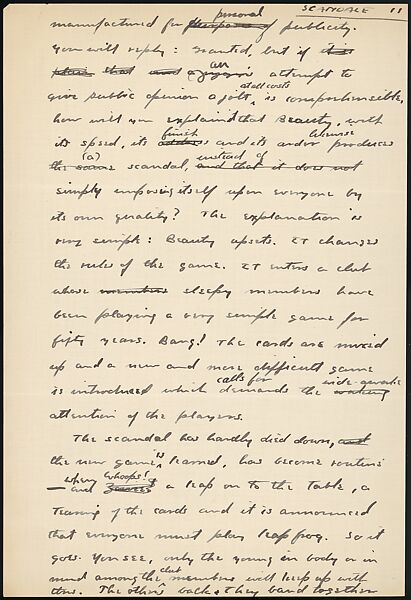 SCANDALE 11
manufactured for the purpose of personal publicity.
You will reply: Granted, but if this
plain that and a genuine an attempt to
give public opinion a jolt at all costs, is comprehensible,
how will you explain that Beauty, with
its speed, its finish and its ardor produces likewise
the same (a) scandal, and that it does not instead of
simply imposing itself upon everyone by
its own quality? The explanation is
very simple: Beauty upsets. It changes
the rules of the game. It enters a club
whose members sleepy members have
been playing a very simple game for
fifty years. Bang! The cards are mixed
up and a new and more difficult game
is introduced which demands calls for the wide-awake
attention of the players.
The scandal has hardly died down, and
the new game is learned, has become routine
— and when whoops! a leap on to the table, a
tearing of the cards and it is announced
that everyone must play leap frog. So it
goes. You see, only the young in body or in
mind among the club members will keep up with
this. The others balk & They band together